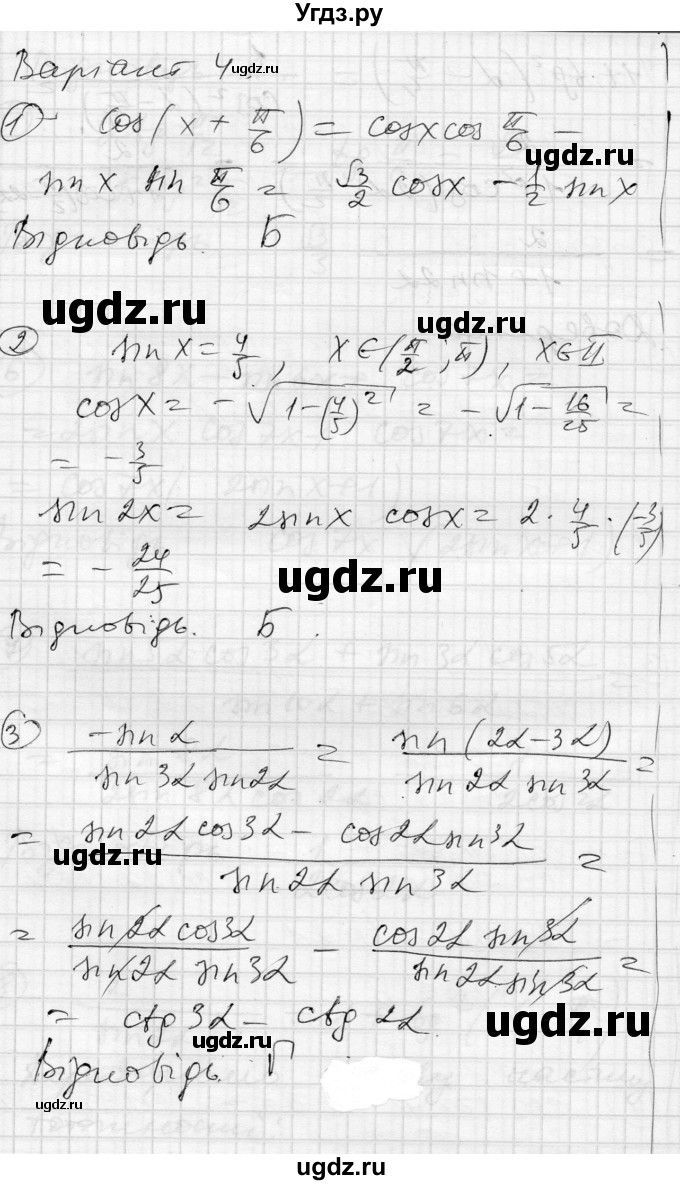 Угдз.ру
Варіант 4
① cos(x + π/6) = cosx cos π/6 −
sin x sin π/6 = √3/2 cosx − 1/2 sin x
Відповідь. Б
ugdz.ru
ugdz.ru
ugdz.ru
② sin x = 4/5, x ∈ (π/2; π), x ∈ II
cos x = −√(1 − (4/5)²) = −√(1 − 16/25) =
= −3/5
sin 2x = 2 sin x cos x = 2 · 4/5 · (−3/5)
= −24/25
ugdz.ru
Відповідь. Б.
③ −sin α / sin 3α sin 2α = sin (2α − 3α) / sin 2α sin 3α =
= sin 2α cos 3α − cos 2α sin 3α / sin 2α sin 3α =
ugdz.ru
= sin 2α cos 3α / sin 2α sin 3α − cos 2α sin 3α / sin 2α sin 3α =
= ctg 3α − ctg 2α.
ugdz.ru
ugdz.ru
Відповідь. Г
ugdz.ru
ugdz.ru